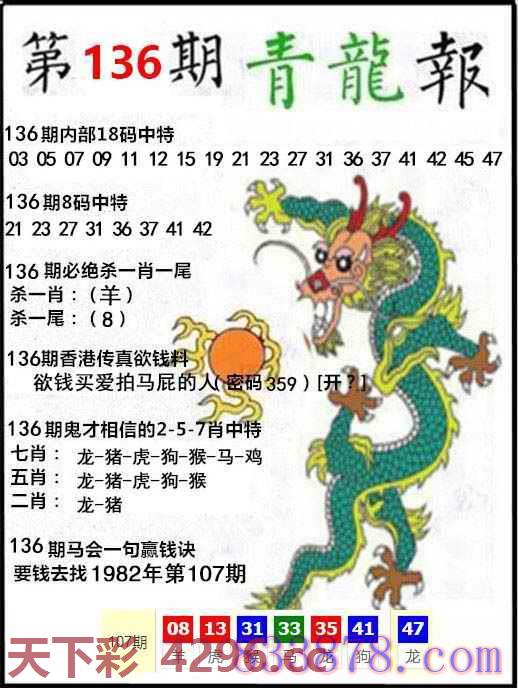 第136期青龍報
136期内部18码中特
03 05 07 09 11 12 15 19 21 23 27 31 36 37 41 42 45 47
136期8码中特
21 23 27 31 36 37 41 42
136期必绝杀一肖一尾
杀一肖：（羊）
杀一尾：（8）
136期香港传真欲钱料
欲钱买爱拍马屁的人（密码359）[开？]
136期鬼才相信的2-5-7肖中特
七肖：龙-猪-虎-狗-猴-马-鸡
五肖：龙-猪-虎-狗-猴
二肖：龙-猪
136期马会一句赢钱诀
要钱去找1982年第107期
107期 08 13 31 33 35 41 47
羊 虎 猴 马 龙 狗 龙
天下彩 4296.cc